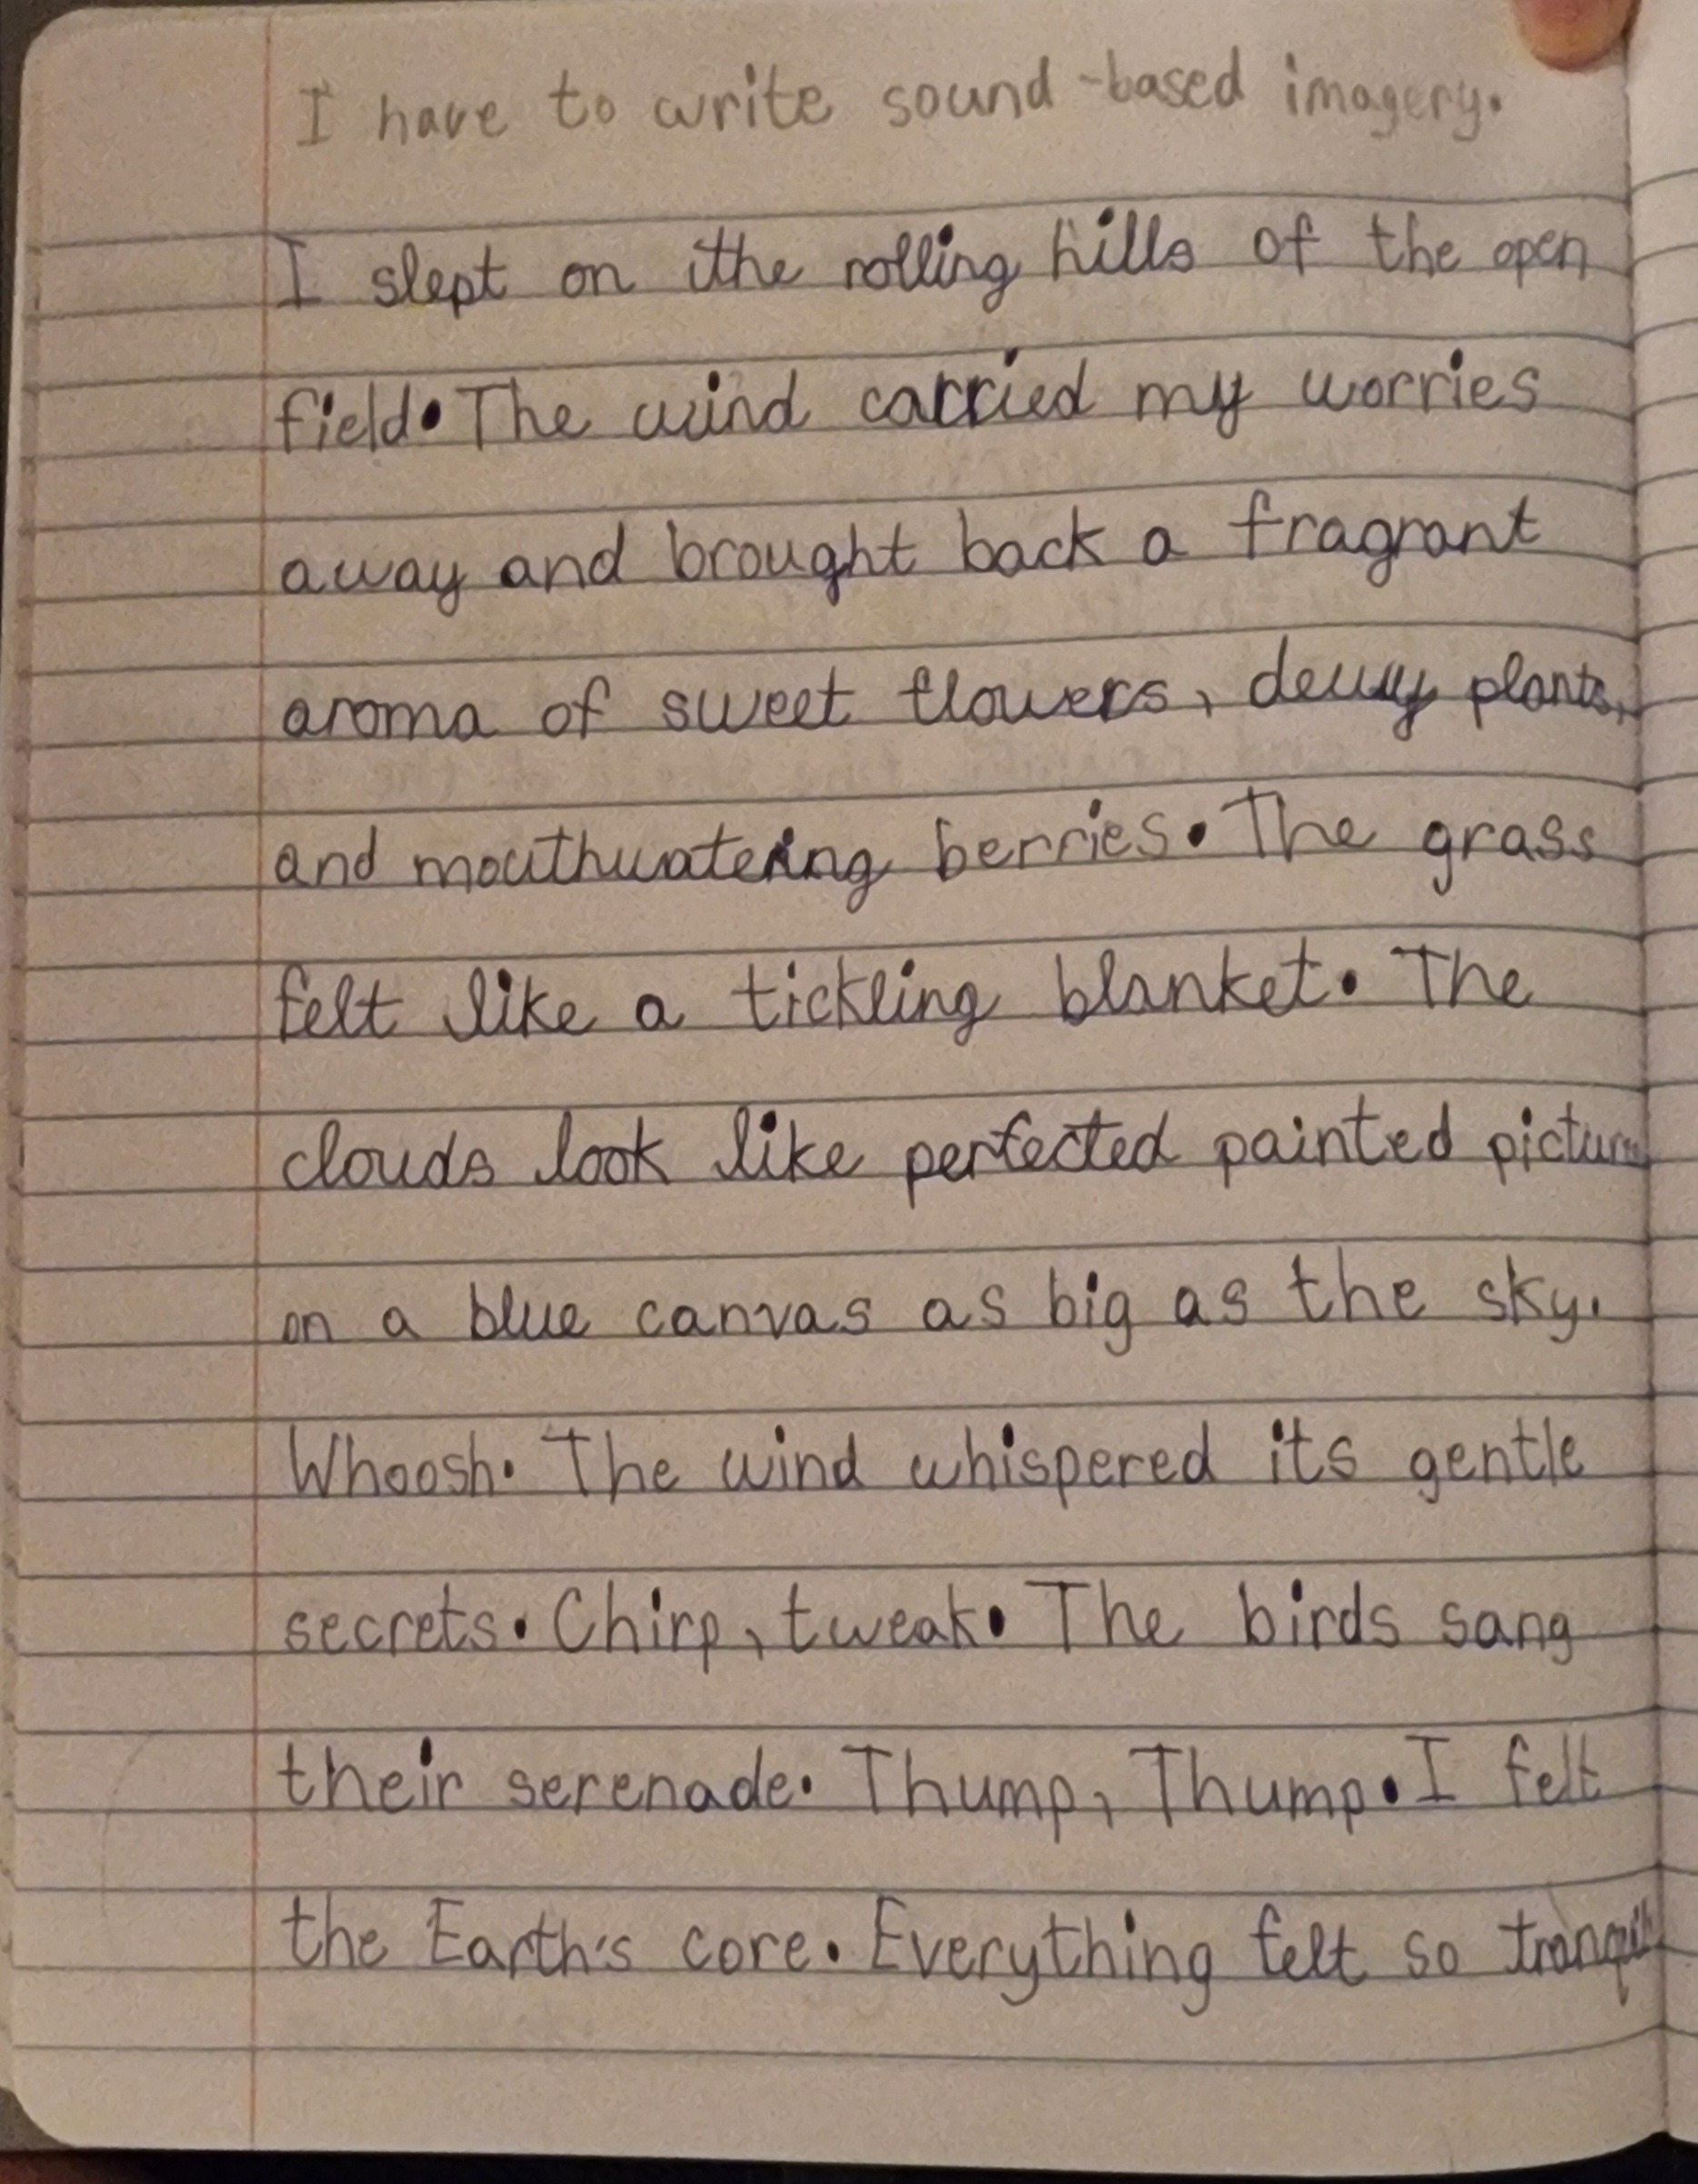 I have to write sound-based imagery.
I slept on the rolling hills of the open
field. The wind carried my worries
away and brought back a fragrant
aroma of sweet flowers, dewy plants,
and mouthwatering berries. The grass
felt like a tickling blanket. The
clouds look like perfected painted
on a blue canvas as big as the sky.
Whoosh. The wind whispered its gentle
secrets. Chirp, tweak. The birds sang
their serenade. Thump, Thump. I felt
the Earth's core. Everything felt so tranquil